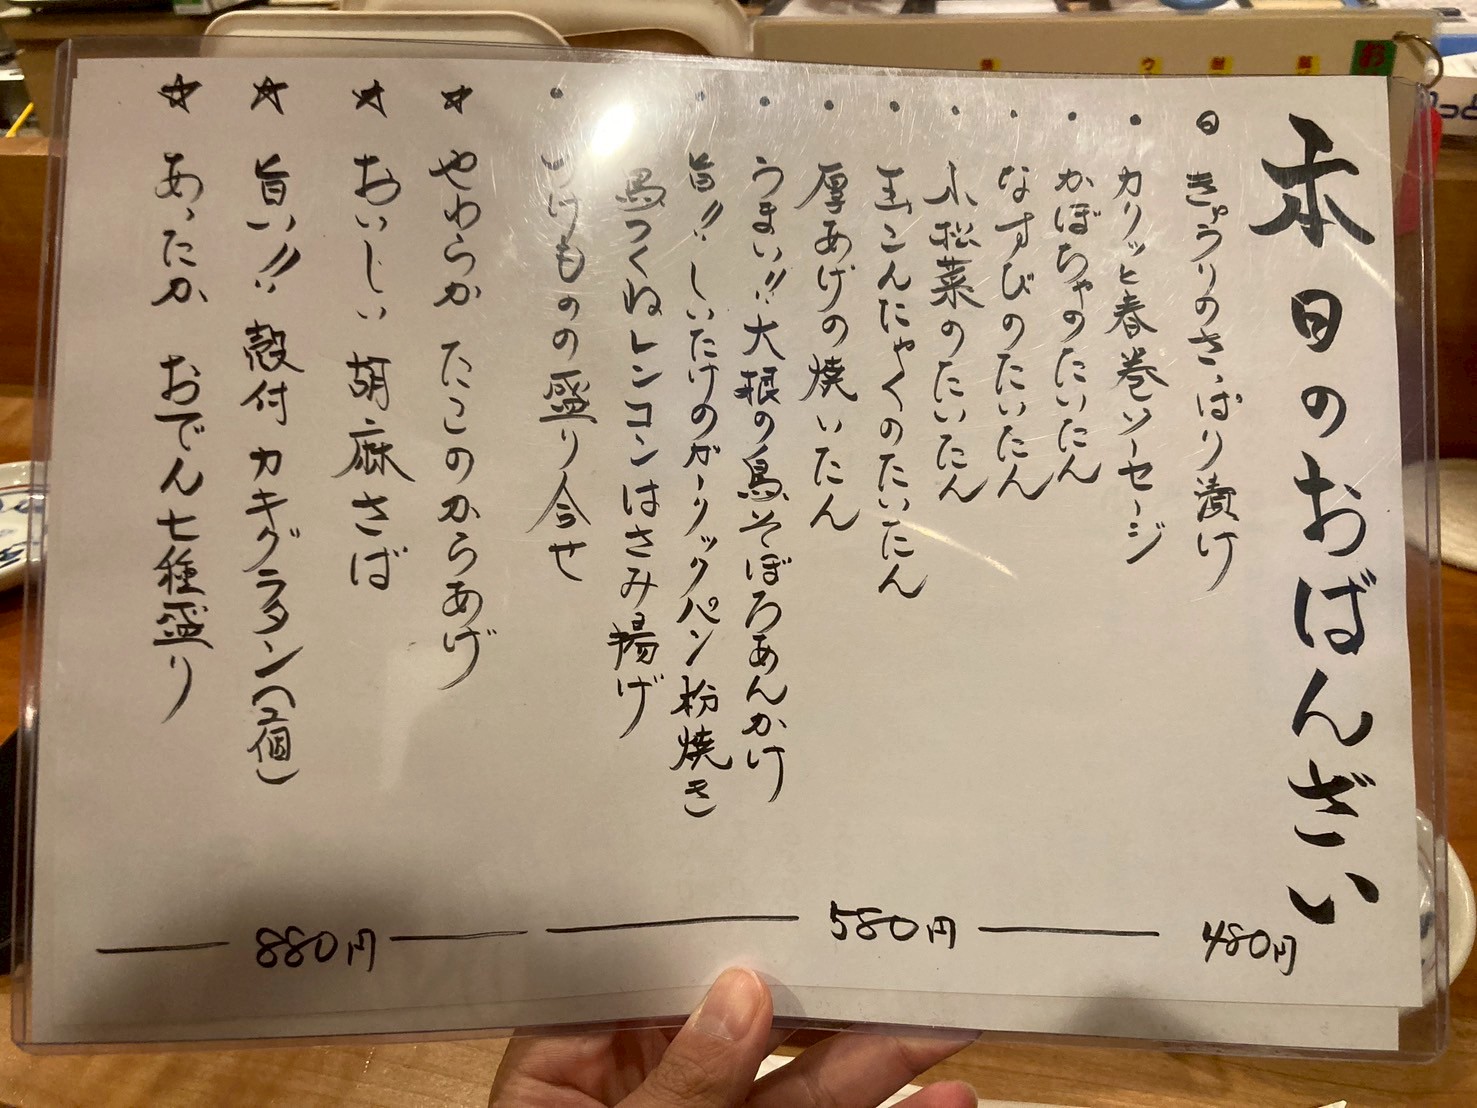 本日のおばんざい
きゅうりのさっぱり漬け
480円
・カリッと春巻ソーセージ
・かぼちゃのたいたん
・なすびのたいたん
・小松菜のたいたん
・玉こんにゃくのたいたん
・厚あげの焼いたん
・うまい!!大根の鳥そぼろあんかけ
・旨!!しいたけのガーリックパン粉焼き
鳥つくねレンコンはさみ揚げ
・つけものの盛り合せ
580円
☆やわらかたこのからあげ
☆おいしい胡麻さば
☆旨い!!殻付カキグラタン(2個)
☆あったか おでん七種盛り
880円